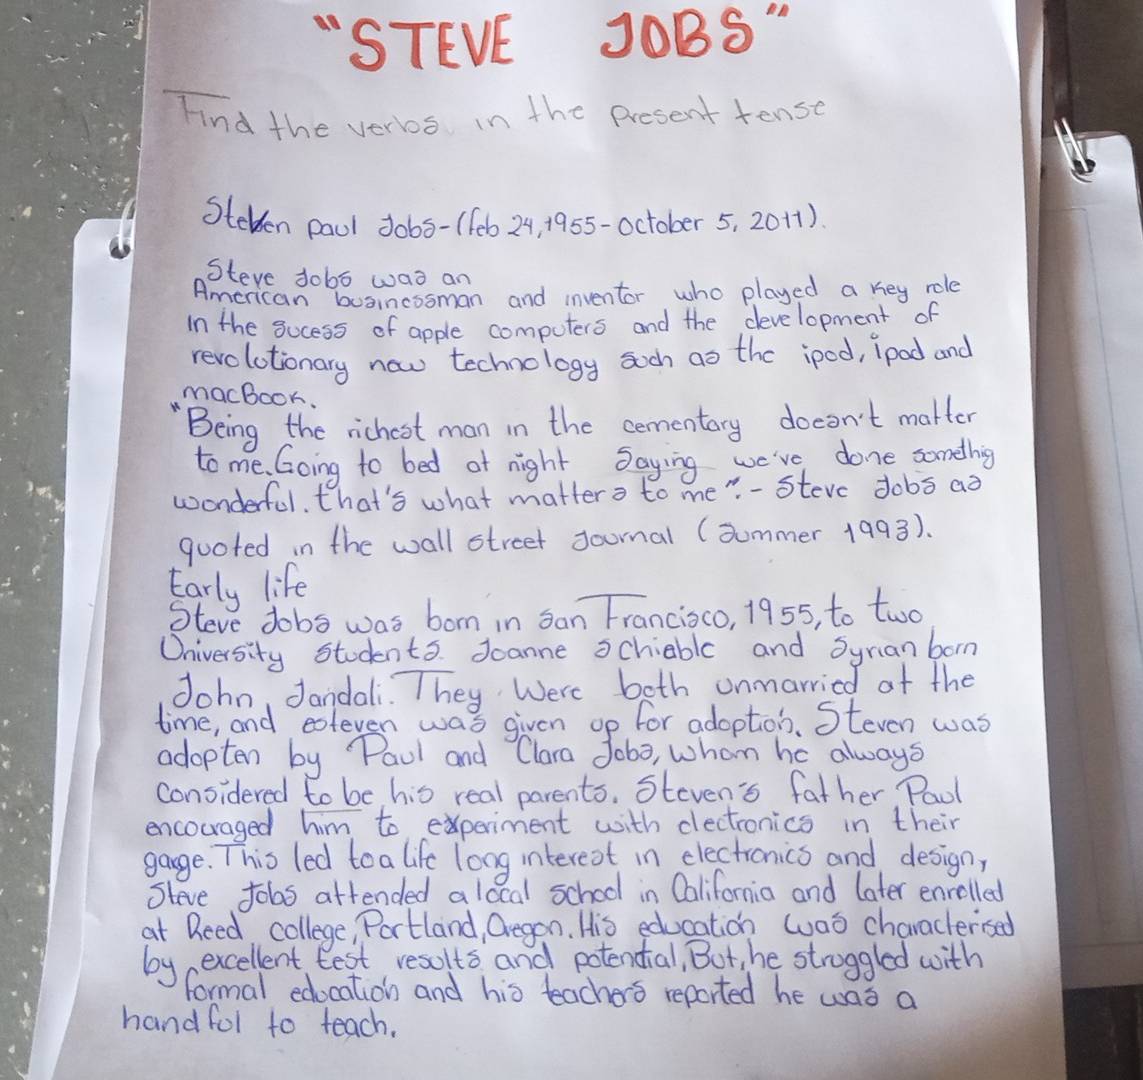 "STEVE JOBS"
Find the verbs in the present tense
Steven paul Jobs-(feb 24,1955-October 5, 2011).
Steve Jobs was an
American businessman and inventor who played a key role
In the sucess of apple computers and the development of
revolutionary new technology such as the ipod, ipad and
macBook.
"Being the richest man in the cementary doesn't matter
to me. Going to bed at night Saying we've done somethig
wonderful. that's what matters to me". - Steve Jobs as
quoted in the wall street Journal (Summer 1993).
Early life
Steve Jobs was born in San Francisco, 1955, to two
University Students. Joanne Schieble and Syrian born
John Jandali. They Were both unmarried at the
time, and esteven was given up for adoption. Steven was
adopten by Paul and Clara Jobs, whom he always
considered to be his real parents. Steven's father Paul
encouraged him to experiment with electronics in their
garge. This led to a life long interest in electronics and design,
Steve Jobs attended a local school in California and later enrolled
at Reed college, Portland, Oregon. His education was characterised
by excellent test results and potential, But, he struggled with
formal education and his teachers reported he was a
handful to teach.